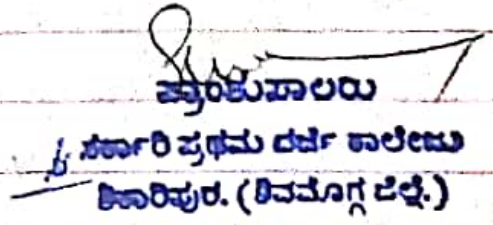 ಪ್ರಾಂಶುಪಾಲರು
ಸರ್ಕಾರಿ ಪ್ರಥಮ ದರ್ಜೆ ಕಾಲೇಜು
ಶಿಕಾರಿಪುರ. (ಶಿವಮೊಗ್ಗ ಜಿಲ್ಲೆ.)